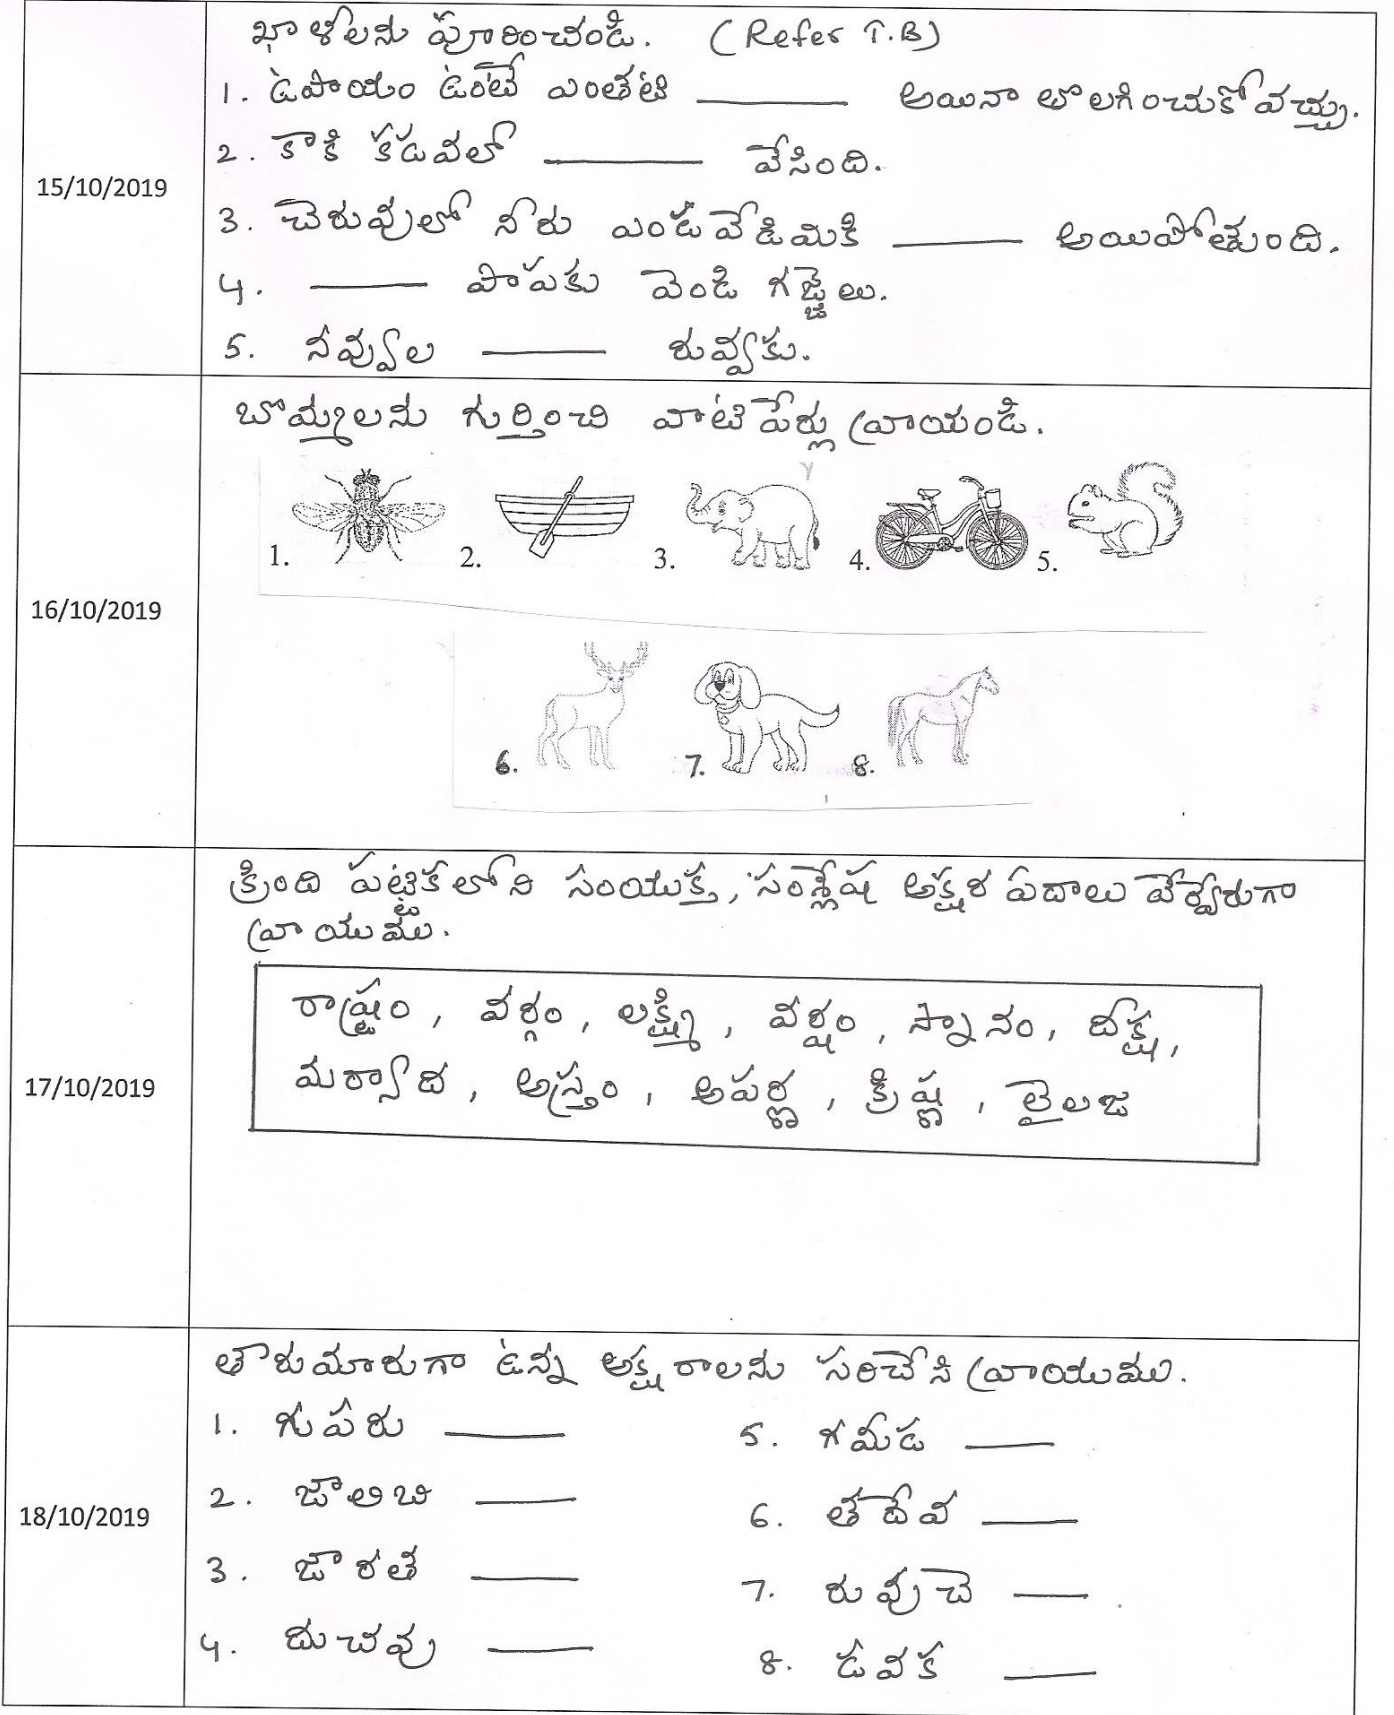 ఖాళీలను పూరించండి. (Refer T.B)
15/10/2019
1. ఉపాయం ఉంటే ఎంతటి ______ అయినా తొలగించుకోవచ్చు.
2. కాకి కడవలో ______ వేసింది.
3. చెరువులో నీరు ఎండవేడిమికి ______ అయిపోతుంది.
4. ______ పాపకు వెండి గజ్జెలు.
5. నవ్వుల ______ రువ్వకు.
16/10/2019
బొమ్మలను గుర్తించి వాటి పేర్లు వ్రాయండి.
1. 2. 3. 4. 5.
6. 7. 8.
17/10/2019
క్రింది పట్టికలోని సంయుక్త, సంశ్లేష అక్షర పదాలు వేర్వేరుగా
వ్రాయుము.
రాష్ట్రం, వర్గం, లక్ష్మి, వర్షం, స్నానం, దీక్ష,
మర్యాద, అస్త్రం, అపర్ణ, క్రిష్ణ, శైలజ
18/10/2019
తారుమారుగా ఉన్న అక్షరాలను సరిచేసి వ్రాయుము.
1. గుపరు ______ 5. గమీడ ______
2. జాలిబి ______ 6. తదేవ ______
3. జారత ______ 7. రువుచె ______
4. దుచవు ______ 8. డవక ______